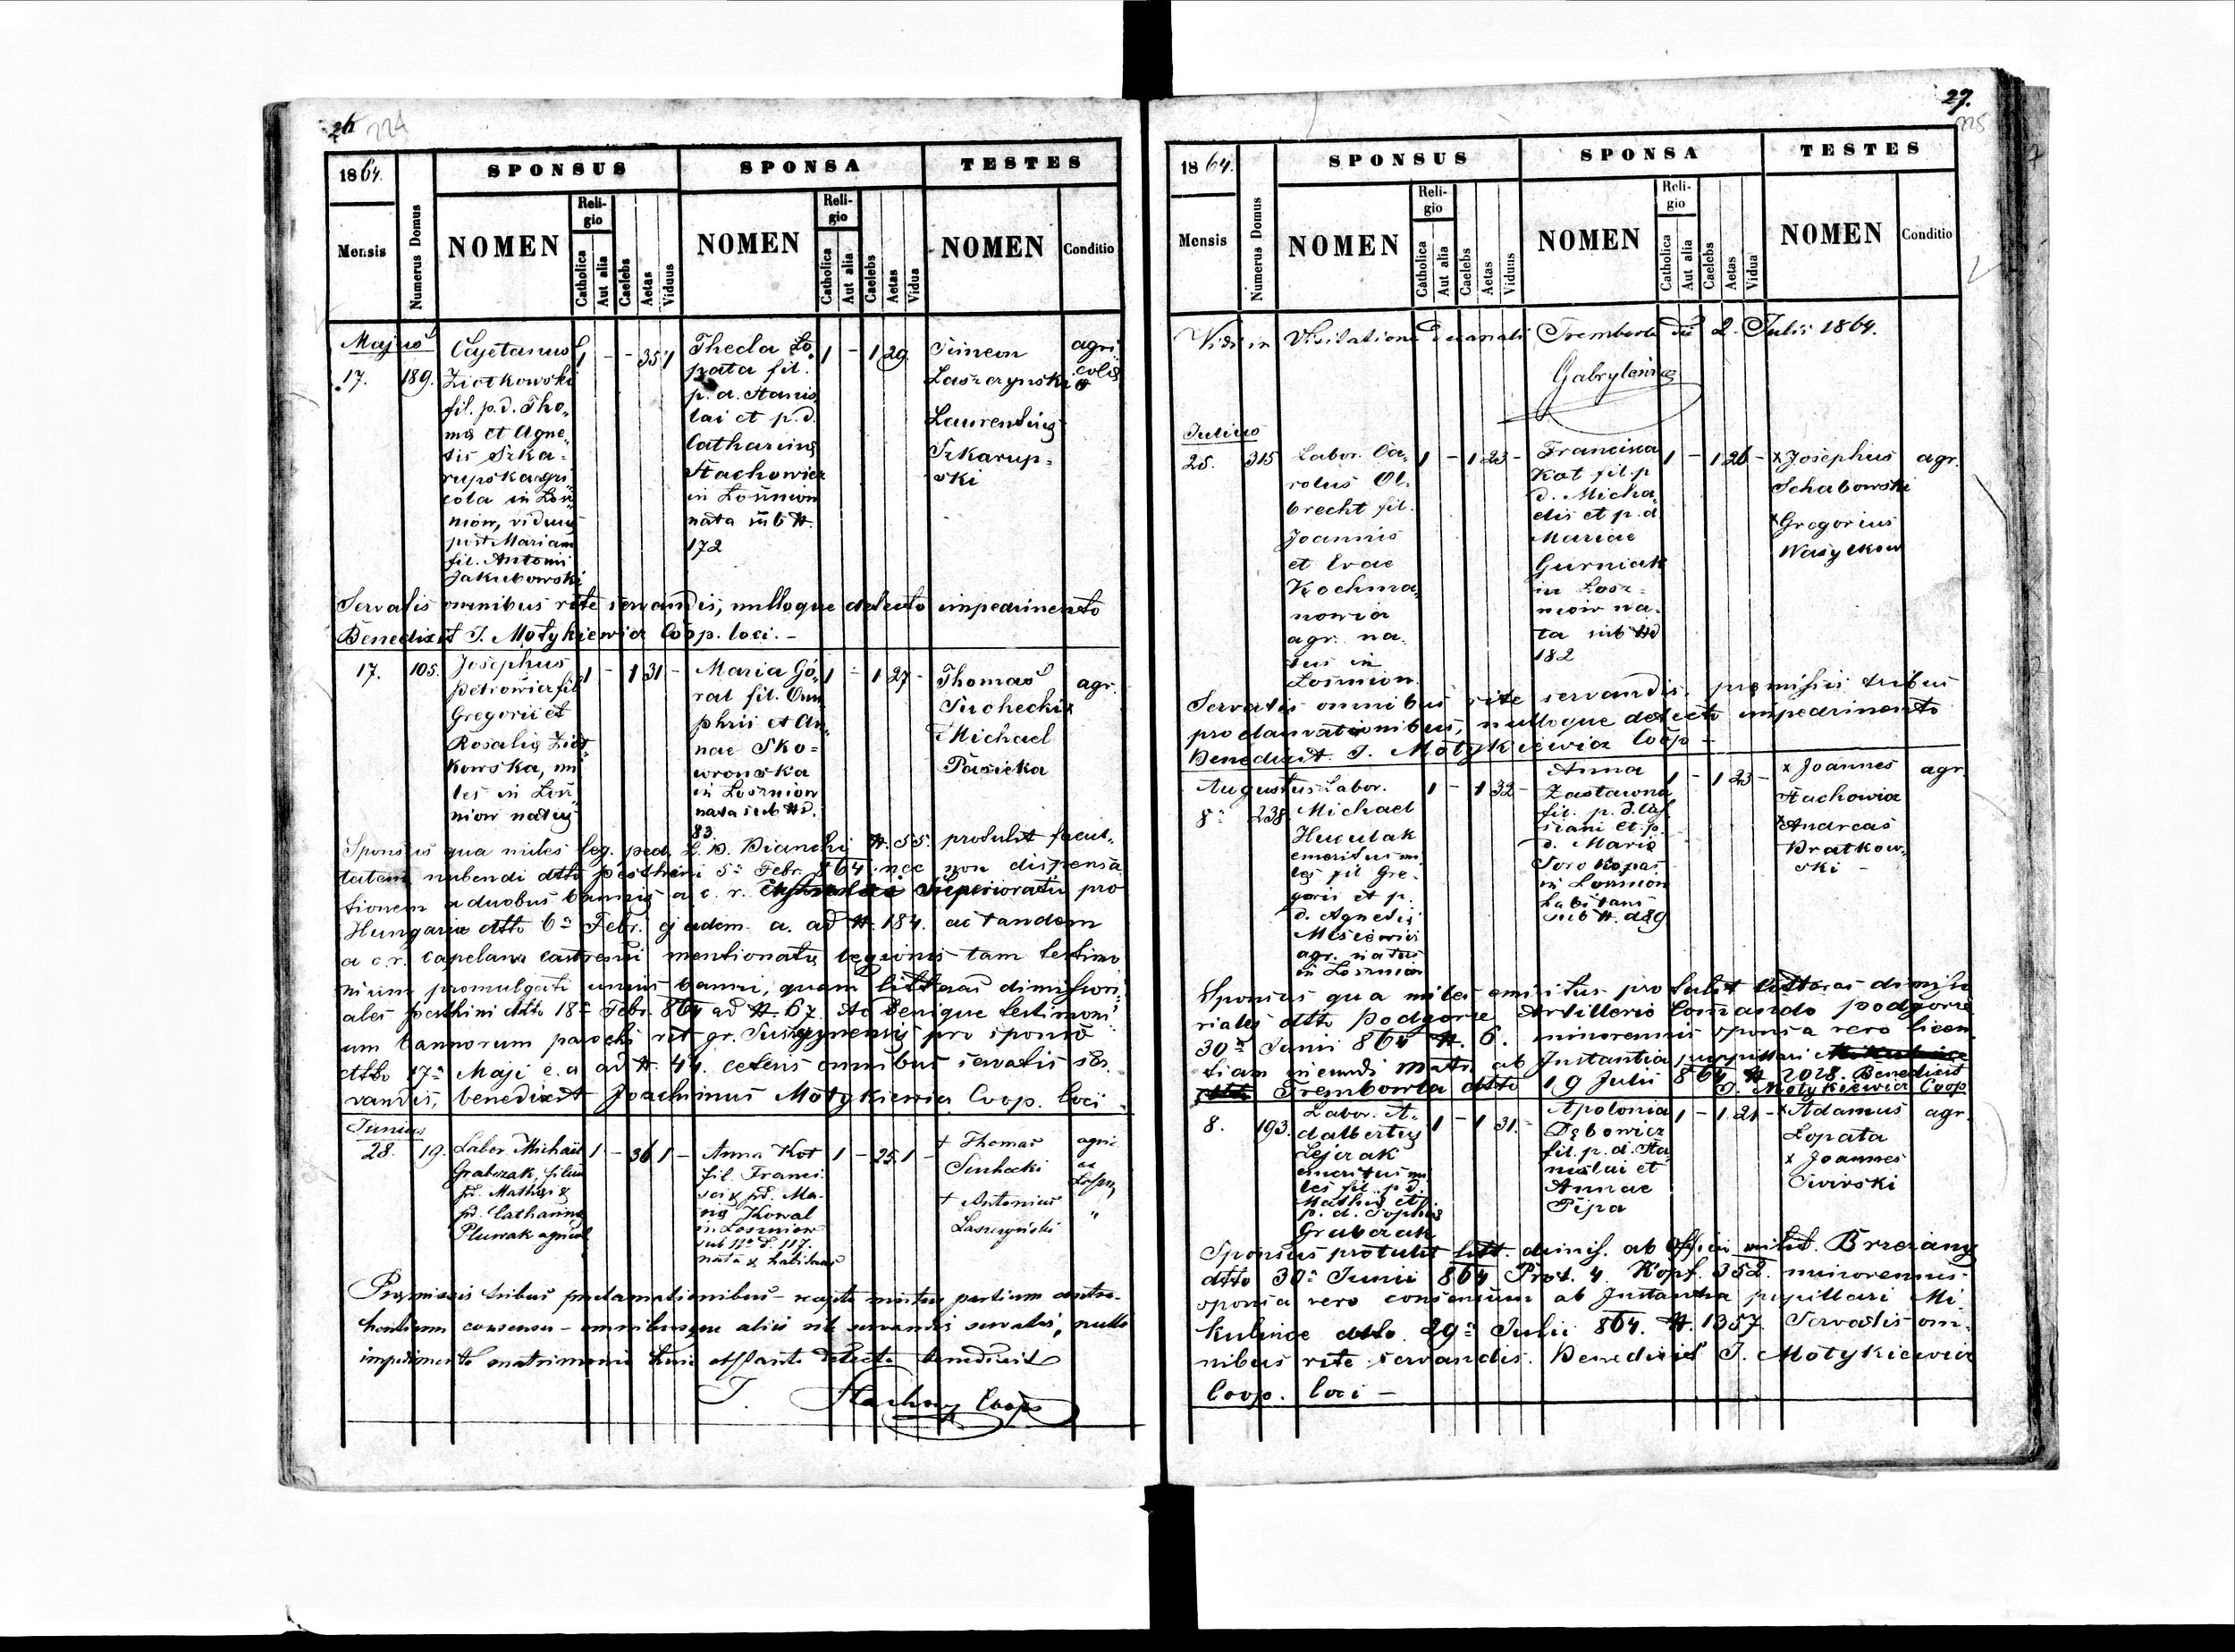 26 224
1864.
SPONSUS
SPONSA
TESTES
Mensis
Numerus Domus
NOMEN
Religio
Catholica
Aut alia
Caelebs
Aetas
Viduus
NOMEN
Religio
Catholica
Aut alia
Caelebs
Aetas
Vidua
NOMEN
Conditio
Majus
17. 189.
Cajetanus
Ziotkowski
fil. p.d. Tho„
mæ et Agne„
tis Szka=
rupska agri„
cola in Łoś„
niow, viduus
post Mariam
fil. Antonii
Jakubowski
1 - - 35 1
Thecla Ło
pata fil.
p. d. Stanis
lai et p.d.
Catharinæ
Stachowicz
in Łośniow
nata sub N.
172
1 - 1 29
Simeon
Laszczynski
Laurentius
Szkarup=
ski
agri
colæ
Servatis omnibus rite servandis, nulloque detecto impedimento
Benedixit J. Motykiewicz Coop. loci. -
17. 105.
Josephus
Petrowicz fil
Gregorii et
Rosaliæ Ziot„
kowska, mi
les in Łoś„
niow natus
1 - 1 31 -
Maria Gó„
ral fil. Onu
phrii et An„
nae Sko=
wronska
in Łosniow
nata sub Nd.
83.
1 - 1 27 -
Thomas
Suchecki
Michael
Pasieka
agr.
Sponsus qua miles leg. ped. L. B. Bianchi N. 55. protulit facul„
tatem nubendi dtto Pesthini 5ª Febr. 864. nec non dispensa
tionem a duobus bannis a c. r. Superioratu pro
Hungaria dtto 6ª Febr. ejusdem a. ad N. 184. ac tandem
a c. r. Capelano castrensi mentionatæ legionis tam testimo
nium promulgati unius banni, quam litteras dimissori„
ales Pesthini dtto 18ª Febr. 864 ad N. 67. Ac denique testimoni
um bannorum parochi rit gr. pro sponso
dtto 17ª Maji e. a ad N. 44. ceteris omnibus servatis ser„
vandis, benedixit Joachimus Motykiewicz Coop. loci
Junius
28. 19.
Labor. Michael
Grabczak, filius
pd. Mathiæ &
pd. Catharinæ
Pluwak agricol
1 - 36 1 -
Anna Kot
fil. Franci
sci & pd. Ma-
riæ Kowal
in Łosniow
sub No d. 117.
nata & habitans
1 - 25 1 -
+ Thomas
Suchecki
+ Antonius
Laszczyński
agric
"
Præmissis tribus proclamationibus - recepto
consensu - omnibusque aliis rite servandis servatis, nullo
impedimento matrimonio huic obstante detecto benedixit
J. Coops
27.
225
1864.
SPONSUS
SPONSA
TESTES
Mensis
Numerus Domus
NOMEN
Religio
Catholica
Aut alia
Caelebs
Aetas
Viduus
NOMEN
Religio
Catholica
Aut alia
Caelebs
Aetas
Vidua
NOMEN
Conditio
Vidi in Visitatione Decanali Trembowla die 2. Julii 1864.
Gabrylewicz
Julius
25. 315
Labor. Ca„
rolus Ol„
brecht fil.
Joannis
et Evae
Kochma„
nowicz
agr. na„
tus in
Łosniow.
1 - 1 23 -
Francisca
Kot fil. p
d. Micha„
elis et p. d.
Mariae
Gurniak
in Łosz=
niow na„
ta sub Nd
182
1 - 1 26 -
x Josephus
Schabowski
x Gregorius
Wasylkow
agr.
Servatis omnibus rite servandis. præmissis tribus
proclamationibus, nulloque detecto impedimento
Benedixit. J. Motykiewicz Coop -
Augustus
8ª 238
Labor.
Michael
Huculak
emeritus mi
les fil Gre„
gorii et p.
d. Agnetis
Misiewicz
agr. natus
in Łosniow
1 - 1 32 -
Anna
Zastawna
fil. p. d. Cas
siani et p.
d. Mariæ
Sorokopas
in Łosniow
habitans
sub N. d 89
1 - 1 23 -
x Joannes
Stachowicz
x Andreas
Bratkow„
ski -
agr.
Sponsus qua miles emeritus protulit litteras dimisso
riales dtto Podgorze Artillerie Comando Podgorze
30ª Junii 864 N. 6. minorennis sponsa vero licen
tiam ineundi matr. ab Instantia pupillari
Trembowla dtto 19 Julii 864 N. 2028. Benedixit
J. Motykiewicz Coop
8. 193.
Labor. A„
dalbertus
Lejczak
emeritus mi
les fil. p. d.
Mathiæ et
p. d. Sophiæ
Grabczak
1 - 1 31 -
Apolonia
Dębowicz
fil. p. d. Sta„
nislai et
Annae
Pipa
1 - 1 21 -
x Adamus
Łopata
x Joannes
Siwirski
agr.
Sponsus protulit litt. dimiss. ab Officio milit. Brzezany
dtto 30ª Junii 864 Prot. 4. Kopf. 352. minorennis
sponsa vero consensum ab Instantia pupillari Mi„
kulince dtto 29ª Julii 864. N. 1357. Servatis om„
nibus rite servandis. Benedixit J. Motykiewicz
Coop. loci -